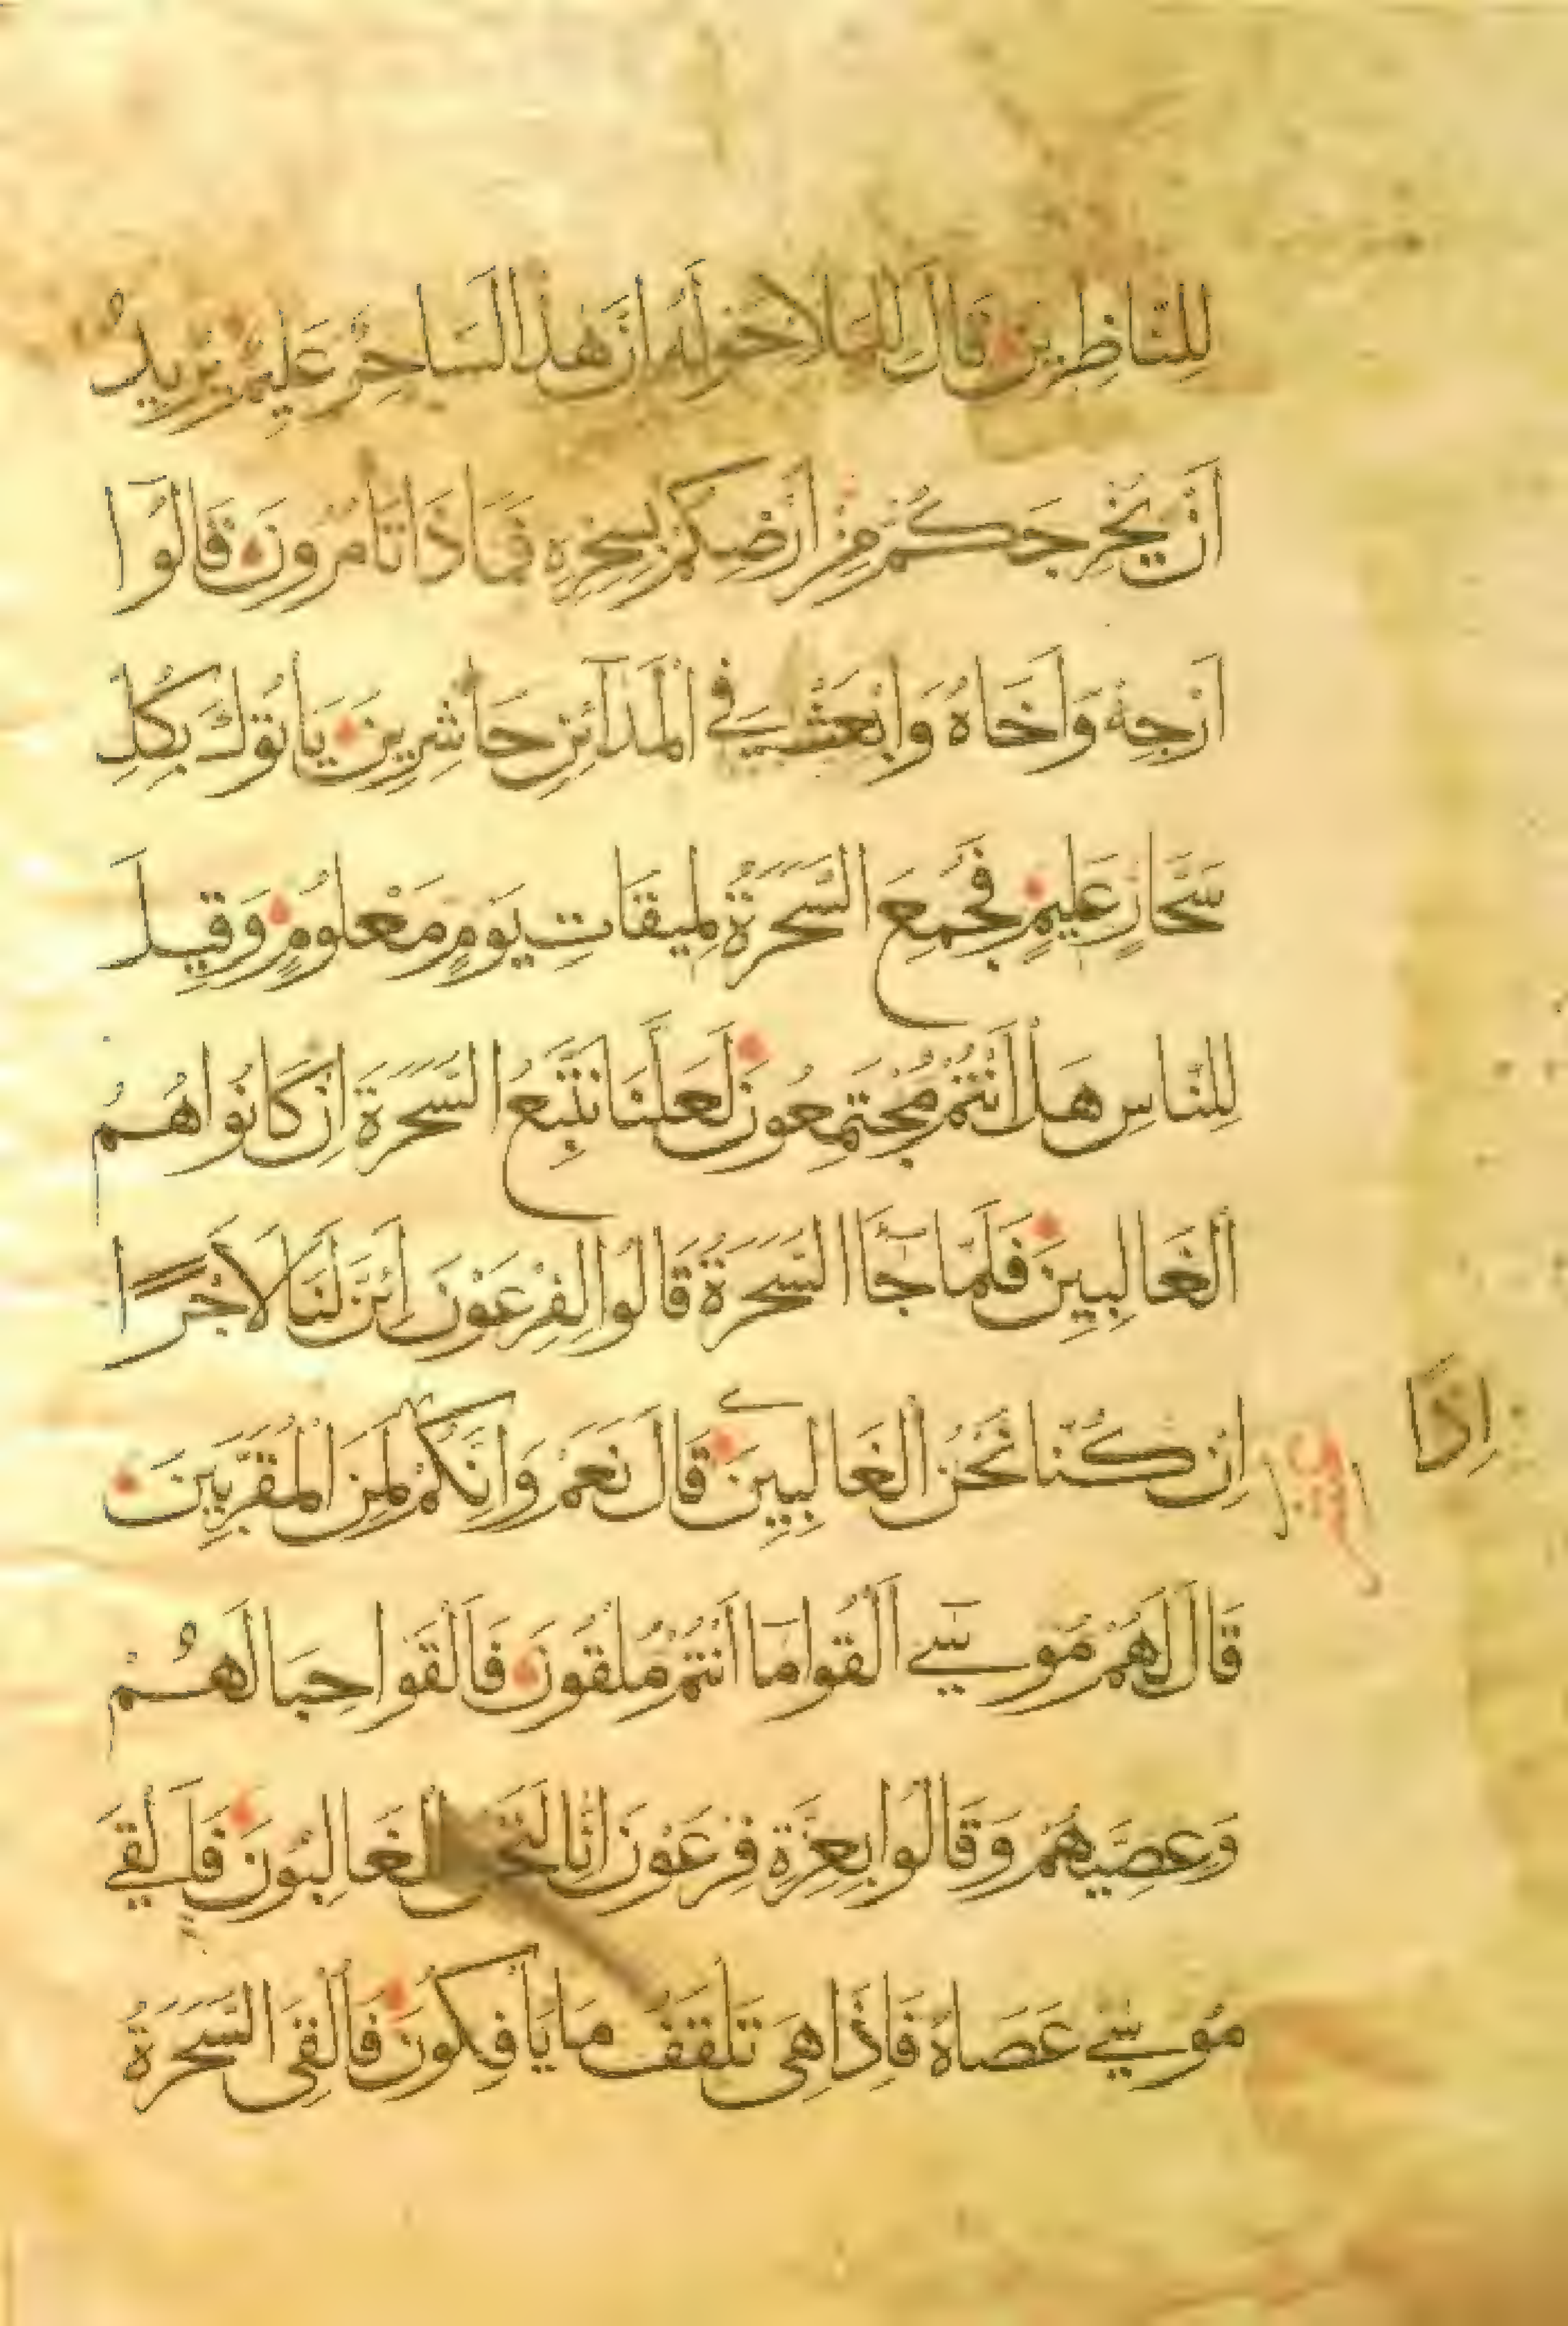 لِلنَّاظِرِينَ قَالَ لِلْمَلَاِ حَوْلَهُ اِنَّ هَذَا لَسَاحِرٌ عَلِيمٌ يُرِيدُ
اَنْ يُخْرِجَكُمْ مِنْ اَرْضِكُمْ بِسِحْرِهِ فَمَاذَا تَأمُرُونَ قَالُوا
اَرْجِهْ وَاَخَاهُ وَابْعَثْ فِي الْمَدَآئِنِ حَاشِرِينَ يَأتُوكَ بِكُلِّ
سَحَّارٍ عَلِيمٍ فَجُمِعَ السَّحَرَةُ لِمِيقَاتِ يَوْمٍ مَعْلُومٍ وَقِيلَ
لِلنَّاسِ هَلْ اَنْتُمْ مُجْتَمِعُونَ لَعَلَّنَا نَتَّبِعُ السَّحَرَةَ اِنْ كَانُوا هُمُ
الْغَالِبِينَ فَلَمَّا جَآءَ السَّحَرَةُ قَالُوا لِفِرْعَوْنَ اَئِنَّ لَنَا لَاَجْرًا
اِنْ كُنَّا نَحْنُ الْغَالِبِينَ قَالَ نَعَمْ وَاِنَّكُمْ لَمِنَ الْمُقَرَّبِينَ
اِذًا
قَالَ لَهُمْ مُوسَىٓ اَلْقُوا مَآ اَنْتُمْ مُلْقُونَ فَاَلْقَوْا حِبَالَهُمْ
وَعِصِيَّهُمْ وَقَالُوا بِعِزَّةِ فِرْعَوْنَ اِنَّا لَنَحْنُ الْغَالِبُونَ فَاَلْقَى
مُوسَى عَصَاهُ فَاِذَا هِيَ تَلْقَفُ مَا يَأفِكُونَ فَاُلْقِيَ السَّحَرَةُ